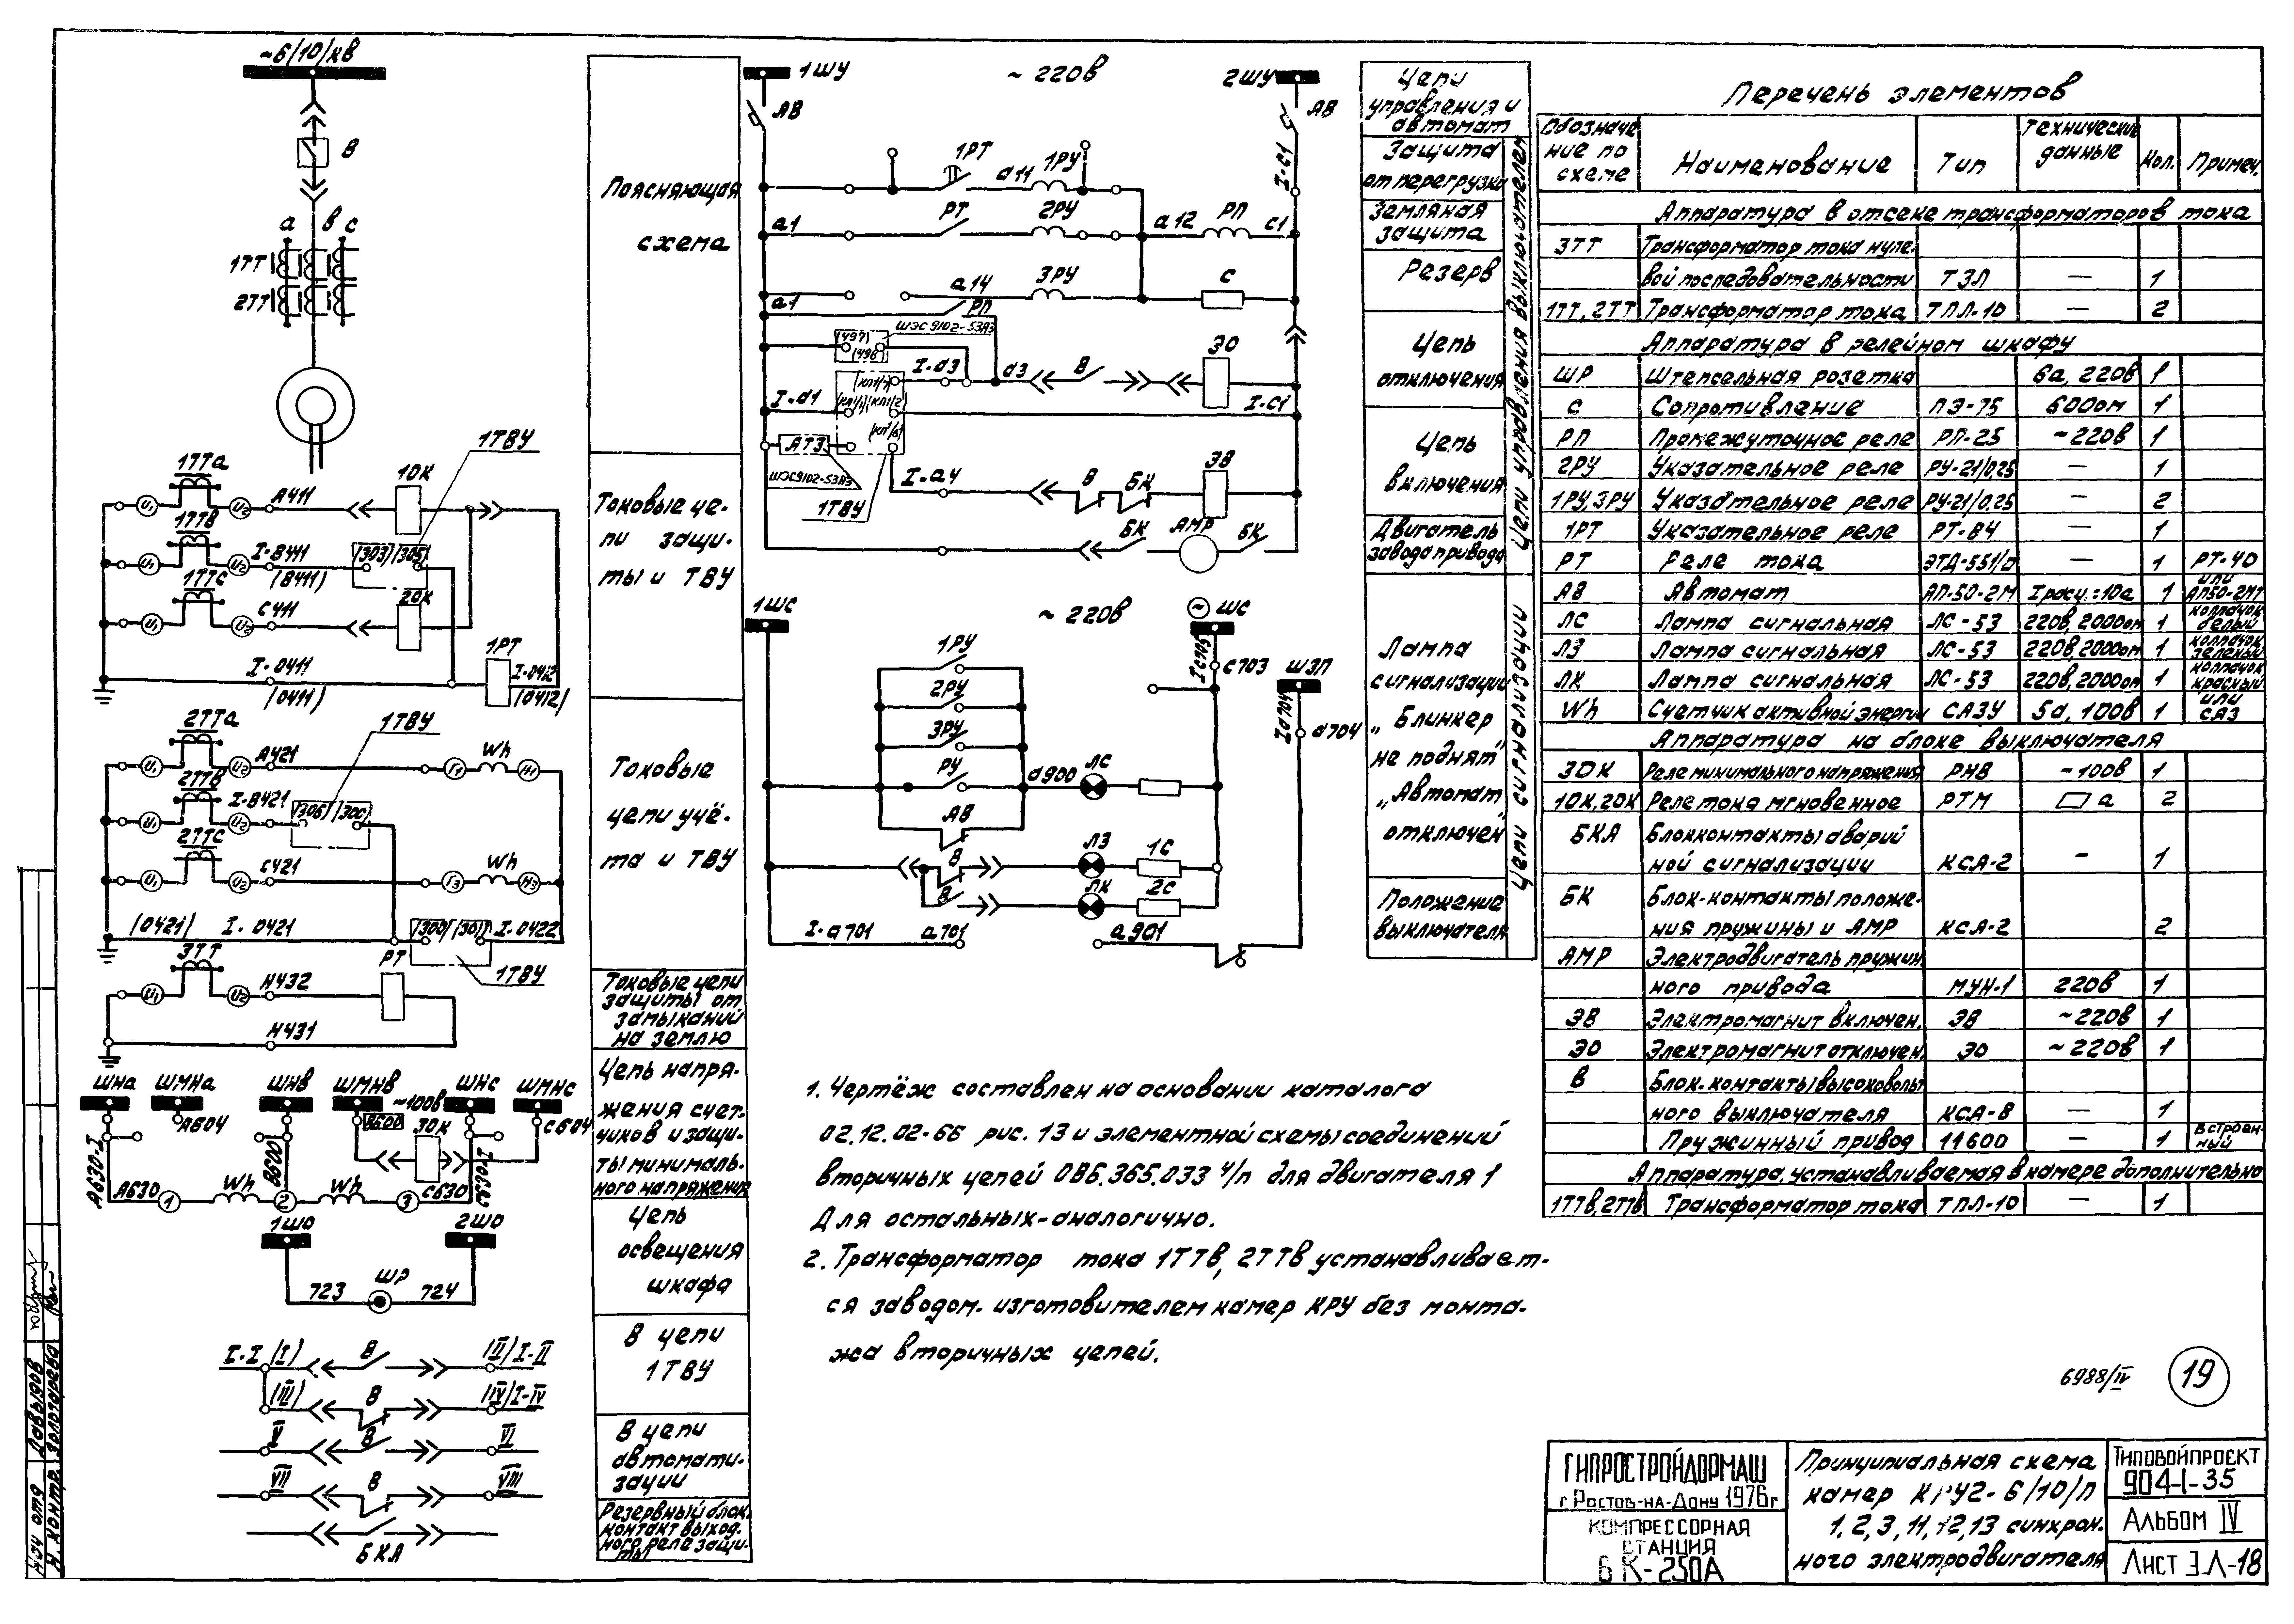 ~6/10/кв
В
а в с
1ТТ
2ТТ
1ТВУ
1ТТа
И1
И2
А411
10К
1ТТв
И2
I-В411
(В411)
/303/ /305/
1ТТс
И1
И2
С411
20К
1РТ
I-0411
(0411)
I-0412
(0412)
2ТТа
1ТВУ
И1
И2
А421
Г1
Wh
Н1
2ТТв
И1
И2
I-В421
2ТТс
И1
И2
С421
Г3
Wh
Н3
(0421)
I-0421
I-0422
3ТТ
РТ
1ТВУ
И1
И2
Н432
Н431
ШНа
ШМНа
ШНв
ШМНв
~100в
ШНс
ШМНс
А604
В600
30К
С604
А630-I
В600
А630
1
Wh
2
Wh
3
С630
1ШО
2ШО
723
ШР
724
I-I (I)
В
(II) I-II
(III)
В
(IV) I-IV
V
В
VI
VII
В
VIII
БКА
Поясняющая
схема
Токовые це-
пи защи-
ты и ТВУ
Токовые
цепи учё-
та и ТВУ
Токовые цепи
защиты от
замыканий
на землю
Цепь напря-
жения счет-
чиков и защи-
ты минималь-
ного напряжения
Цепь
освещения
шкафа
В цепи
1ТВУ
В цепи
автомати-
зации
Резервный блок-
контакт выход-
ного реле защи-
ты
1ШУ
~220в
2ШУ
АВ
АВ
I-С1
1РТ
а11
1РУ
а1
РТ
2РУ
а12
РП
С1
а1
а14
3РУ
С
РП
(497)
(496)
ШЭС9102-53А3
I-а3
а3
В
ЭО
(КЛ1/3)
I-а1
(КЛ1/1)
(КЛ1/2)
I-С1
АТЗ
(КЛ1/6)
ШЭС9102-53А3
1ТВУ
I-а4
В
БК
ЭВ
БК
АМР
БК
1ШС
~220в
ШС
1РУ
I С703
С703
ШЗП
2РУ
I а704
а704
3РУ
РУ
а900
ЛС
АВ
В
ЛЗ
1С
В
ЛК
2С
I-а701
а701
а901
Цепи
управления и
автомат
Защита
от перегрузки
Земляная
защита
Резерв
Цепь
отключения
Цепь
включения
Двигатель
завода привода
Цепи управления выключателем
Лампа
сигнализации
„Блинкер
не поднят"
„Автомат
отключен"
Положение
выключателя
Цепи сигнализации
1. Чертёж составлен на основании каталога
02.12.02-66 рис. 13 и элементной схемы соединений
вторичных цепей ОВБ.365.033 ч/п для двигателя 1
Для остальных-аналогично.
2. Трансформатор тока 1ТТв, 2ТТв устанавливает-
ся заводом-изготовителем камер КРУ без монта-
жа вторичных цепей.
Перечень элементов
Обозначе
ние по
схеме
Наименование
Тип
Технические
данные
Кол.
Примеч.
Аппаратура в отсеке трансформаторов тока
3ТТ Трансформатор тока нуле-
вой последовательности ТЗЛ — 1
1ТТ, 2ТТ Трансформатор тока ТПЛ-10 — 2
Аппаратура в релейном шкафу
ШР Штепсельная розетка 6а, 220в 1
С Сопротивление ПЭ-75 600ом 1
РП Промежуточное реле РП-25 ~220в 1
2РУ Указательное реле РУ-21/0,25 — 1
1РУ, 3РУ Указательное реле РУ-21/0,25 — 2
1РТ Указательное реле РТ-84 — 1
РТ Реле тока ЭТД-551/ — 1 РТ-40
АВ Автомат АП-50-2М Iрасц.=10а 1 или АП50-2МТ
ЛС Лампа сигнальная ЛС-53 220в, 2000ом 1 колпачок белый
ЛЗ Лампа сигнальная ЛС-53 220в, 2000ом 1 колпачок зеленый
ЛК Лампа сигнальная ЛС-53 220в, 2000ом 1 колпачок красный
Wh Счетчик активной энергии САЗУ 5а, 100в 1 или СА3
Аппаратура на блоке выключателя
30К Реле минимального напряжения РНВ ~100в 1
10К, 20К Реле тока мгновенное РТМ а 2
БКА Блокконтакты аварий
ной сигнализации КСА-2 — 1
БК Блок-контакты положе-
ния пружины и АМР КСА-2 2
АМР Электродвигатель пружин.
ного привода МУН-1 220в 1
ЭВ Электромагнит включен. ЭВ ~220в 1
ЭО Электромагнит отключен. ЭО ~220в 1
В Блок-контакты высоковольт
ного выключателя КСА-8 — 1
Пружинный привод 11600 — 1 встроен-ный
Аппаратура, устанавливаемая в камере дополнительно
1ТТв, 2ТТв Трансформатор тока ТПЛ-10 — 1
6988/IV
19
ГИПРОСТРОЙДОРМАШ
г Ростов-на-Дону 1976г
КОМПРЕССОРНАЯ
СТАНЦИЯ
6К-250А
Принципиальная схема
камер КРУ2-6/10/П
1, 2, 3, 11, 12, 13 синхрон.
ного электродвигателя
ТИПОВОЙ ПРОЕКТ
904-1-35
АЛЬБОМ IV
ЛИСТ ЭЛ-18
Нач отд Давыдов
Н. контр. Золотарева